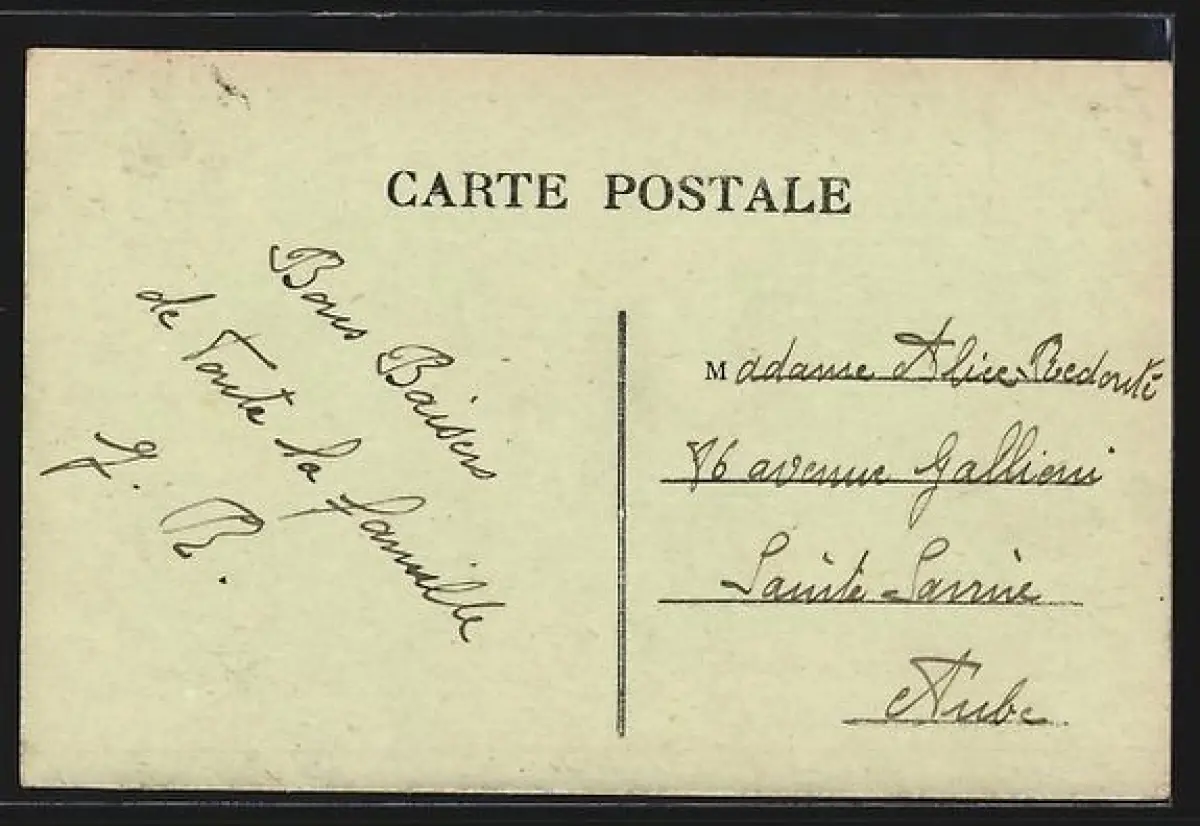 CARTE POSTALE
Bons Baisers
de Toute la famille
J. R.
Madame Alice Redouté
86 avenue Gallieni
Sainte Savine
Aube